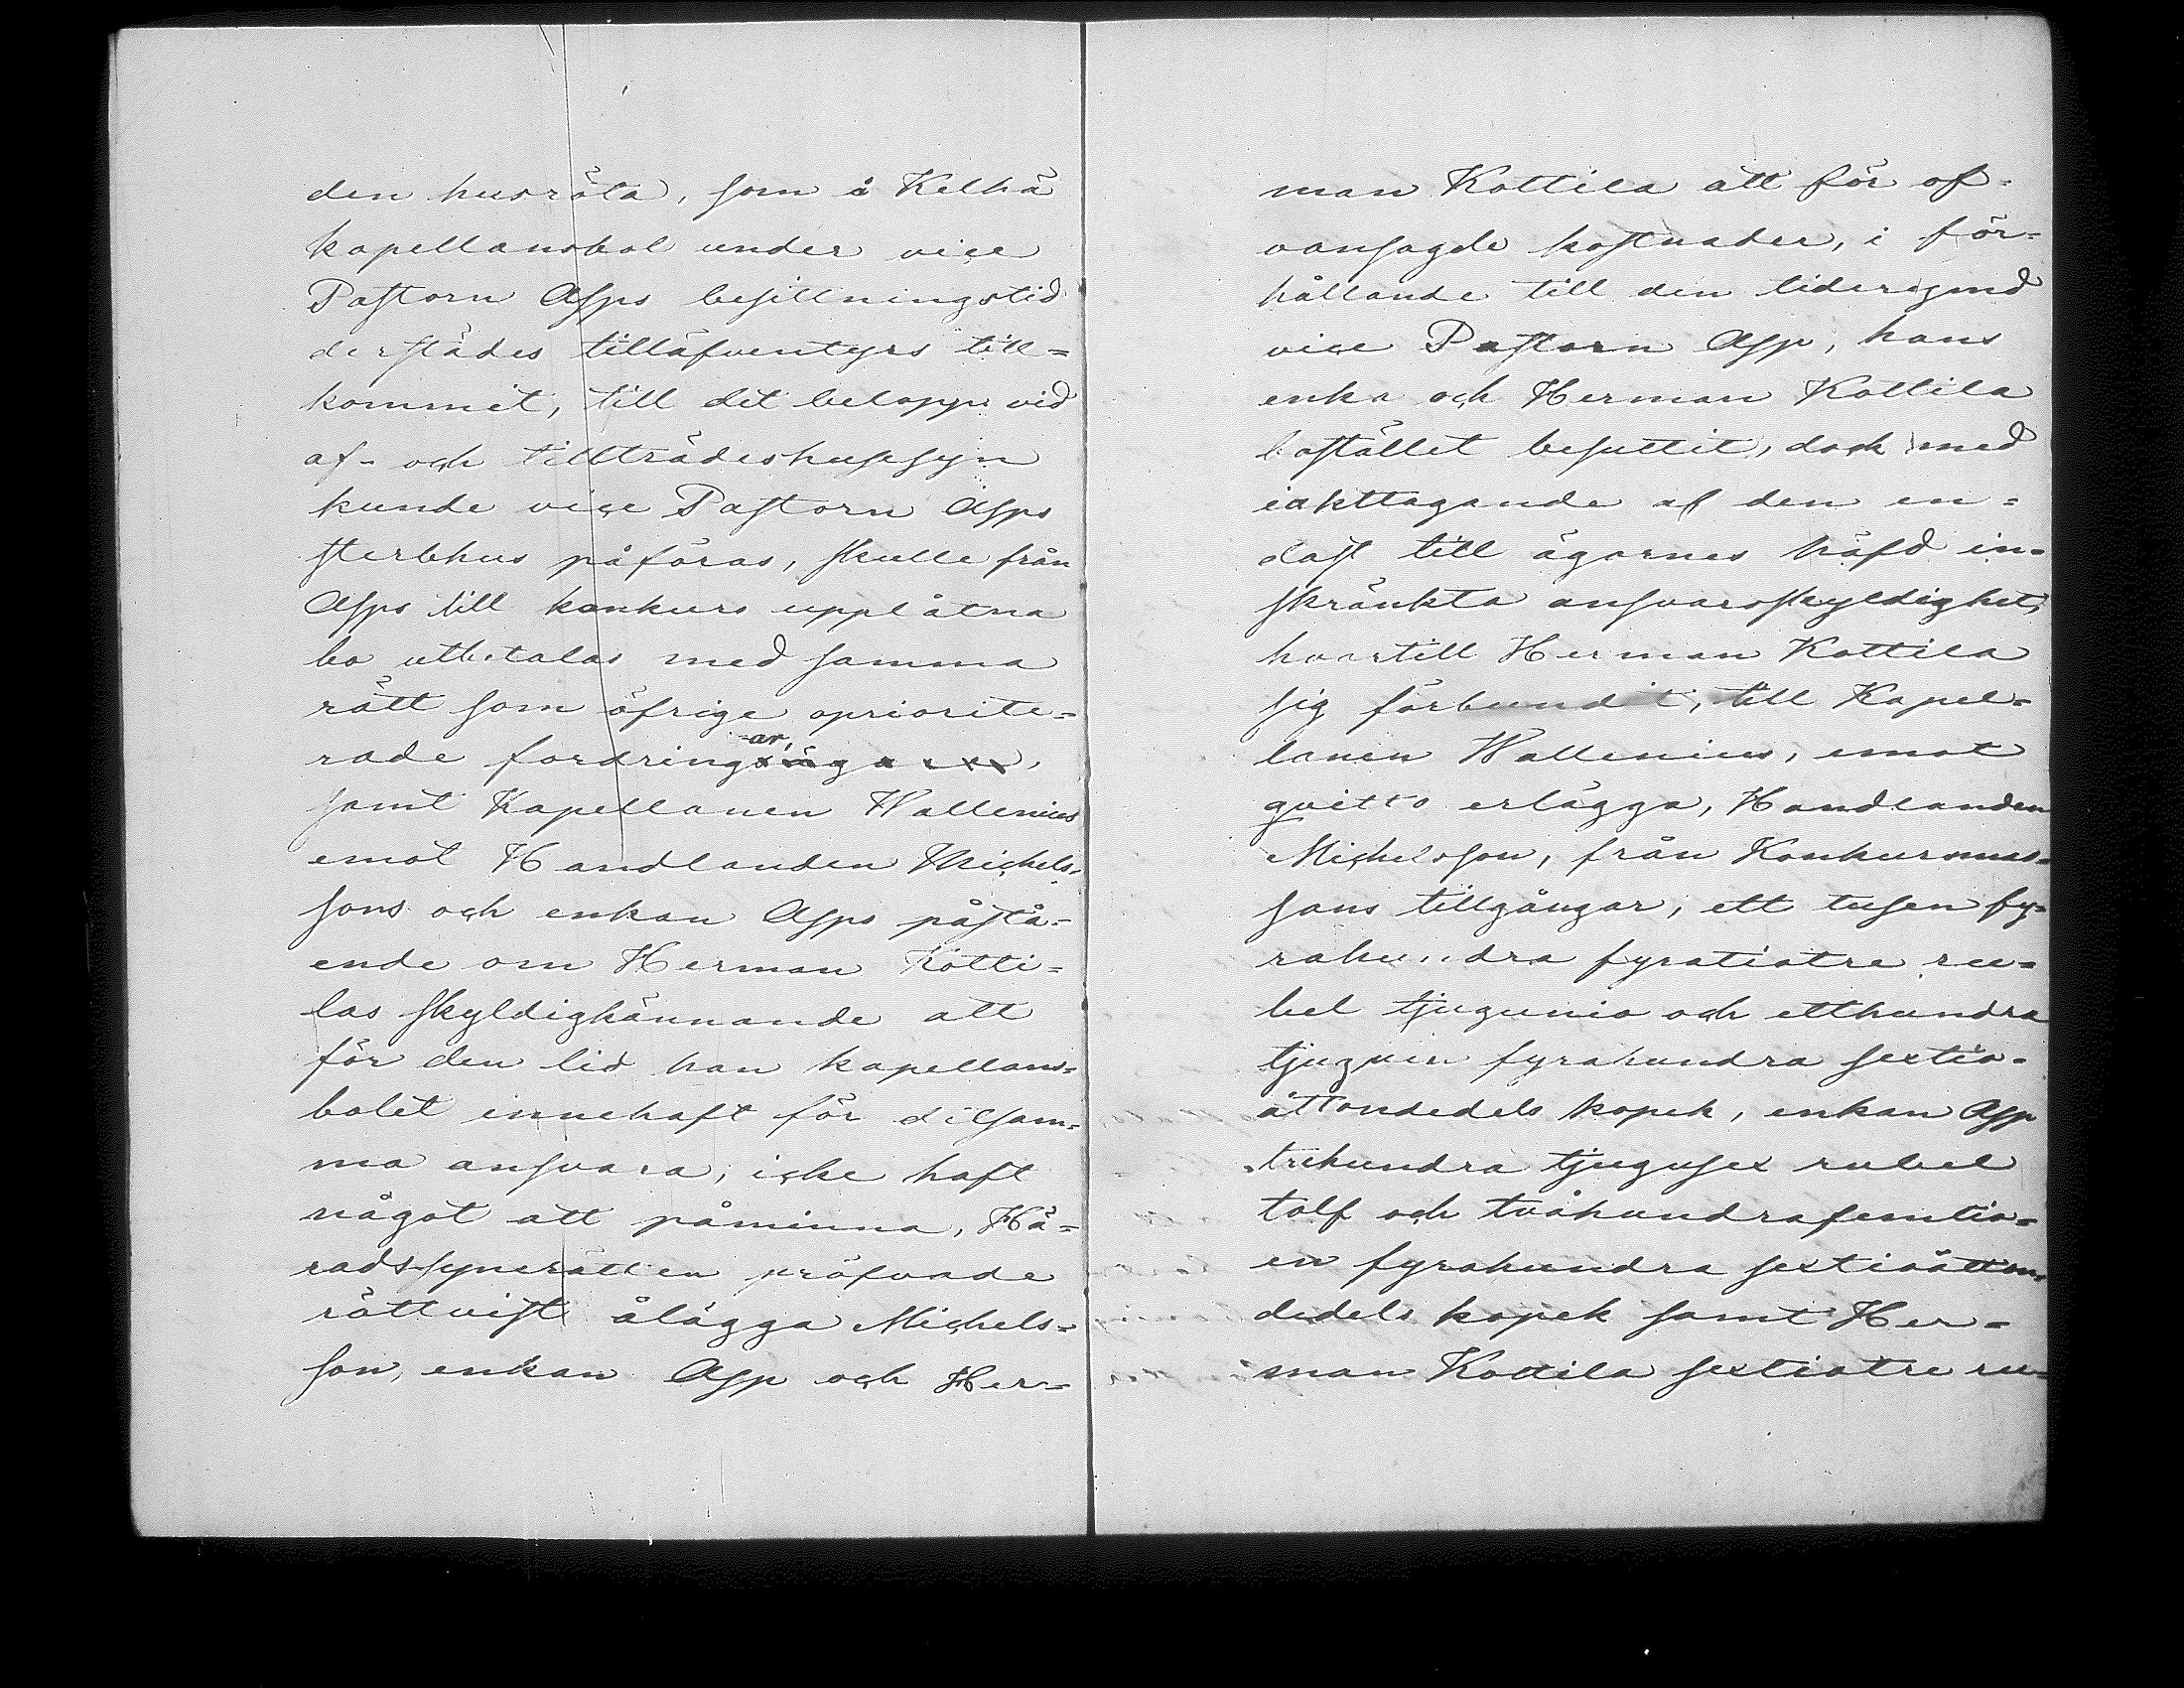 den husröta, som å Kelhä
kapellansbol under vice
Pastorn Asps beställningstid
derstädes tilläfventyrs till=
kommit, till det belopp vid
af- och tillträdeshusesyn
kunde vice Pastorn Asps
sterbhus påföras, skulle från
Asps till konkurs upplåtna
bo utbetalas med samma
rätt som öfrige opriorite=
rade fordringar,
samt Kapellanen Wallenius
emot Handlanden Michels-
sons och enkan Asps påstå=
ende om Herman Kotti=
las skyldigkännande att
för den tid han kapellans=
bolet innehaft för detsam=
ma ansvara, icke haft
något att påminna, Hä=
radssynerätten pröfvade
rättvist ålägga Michels=
son, enkan Asp och Her=
man Kottila att för of=
vansagde kostnader, i för=
hållande till den tiderymd
vice Pastorn Asp, hans
enka och Herman Kottila
bostället besuttit, dock med
iakttagande af den en=
dast till ägornes häfd in=
skränkta ansvarsskyldighet,
hvartill Herman Kottila
sig förbundit, till Kapel=
lanen Wallenius, emot
qvitto erlägga, Handlanden
Michelsson, från Konkursmas=
sans tillgångar, ett tusen fy=
rahundra fyratiotre ru=
bel tjugunio och etthundra
tjuguen fyrahundra sextio=
åttondedels kopek, enkan Asp
trehundra tjugusex rubel
tolf och tvåhundrafemtio=
en fyrahundra sextioåtton=
dedels kopek samt Her=
man Kottila sextiotre ru=